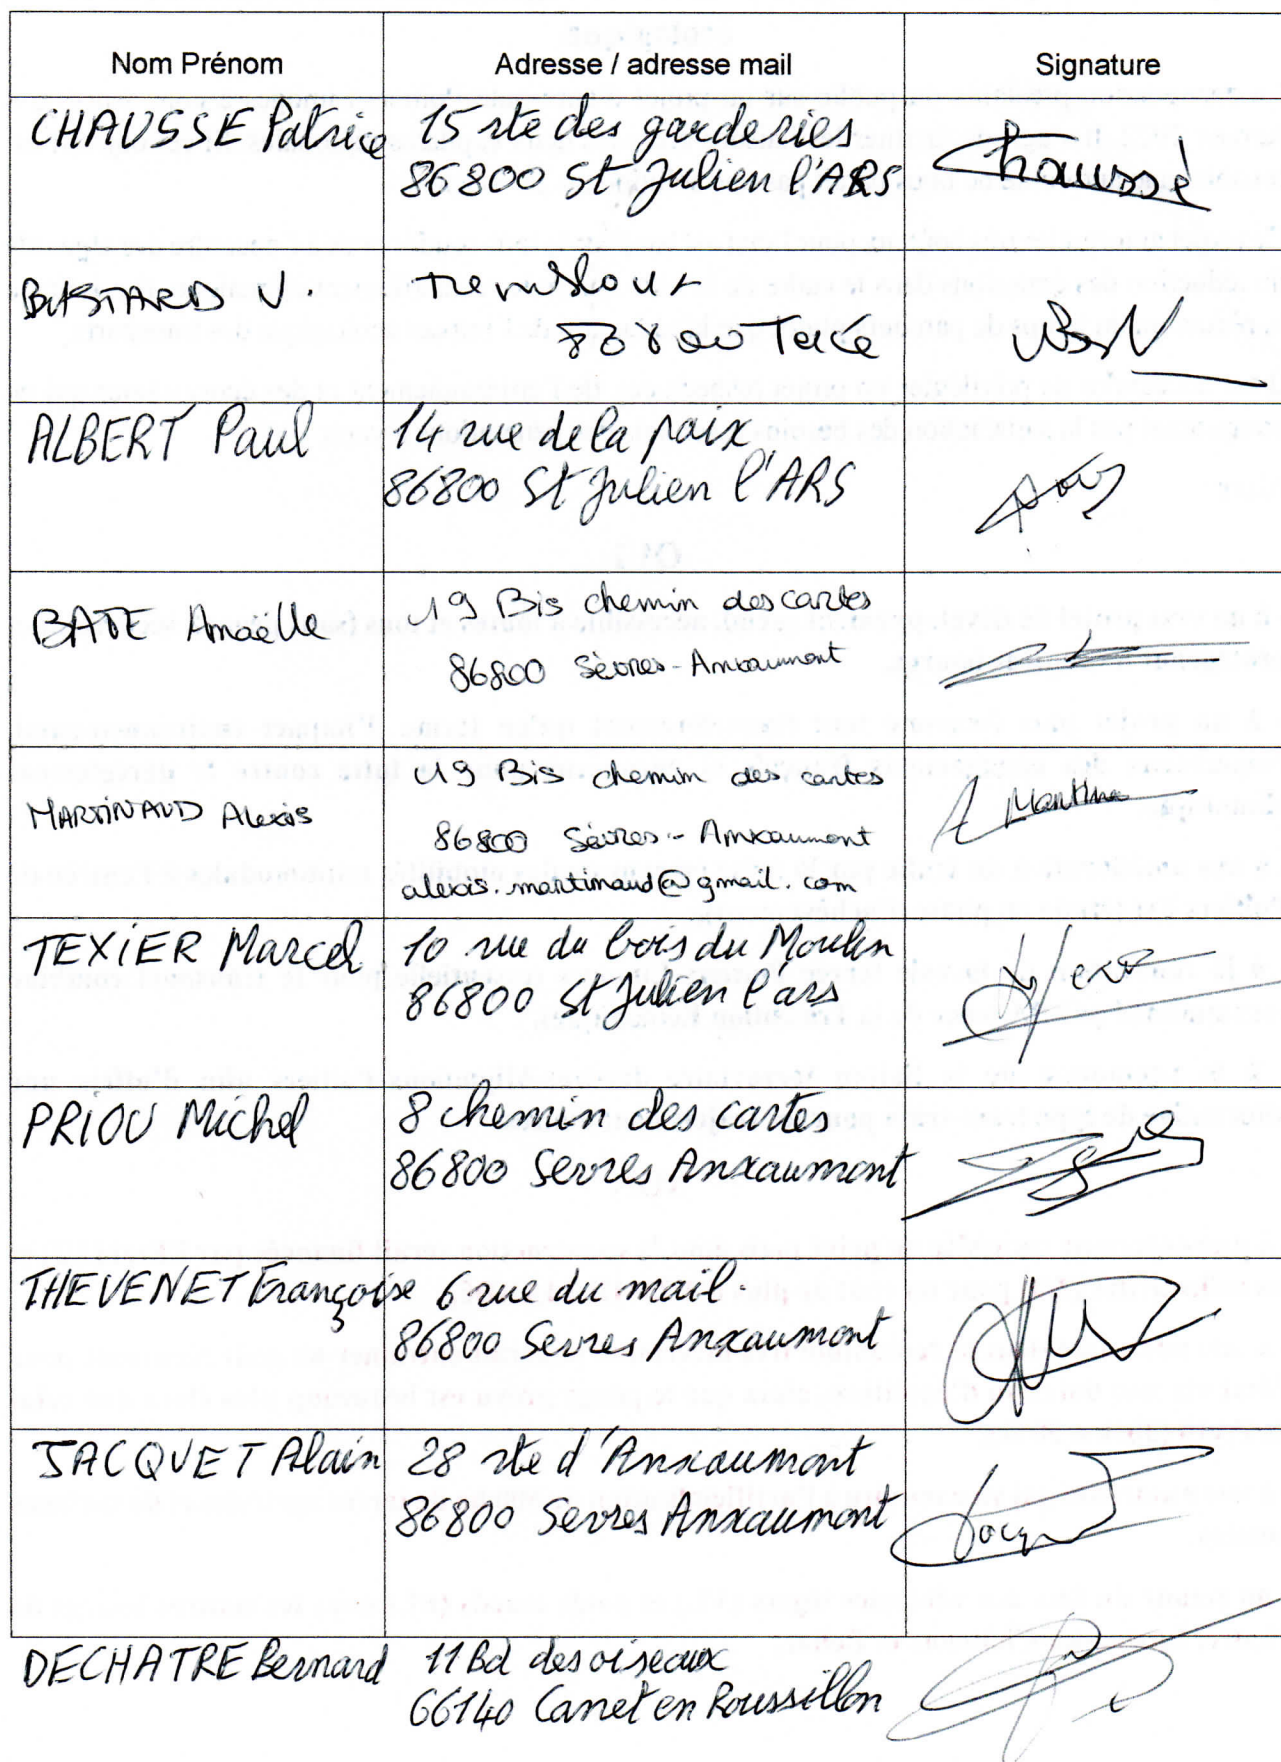 Nom Prénom Adresse / adresse mail Signature
CHAUSSE Patrice 15 rte des garderies
86800 St Julien l'ARS
Chaussé
BASTARD V.
86800 Tercé
ALBERT Paul 14 rue de la paix
86800 St Julien l'ARS
BATE Anaëlle 19 Bis chemin des cartes
86800 Sèvres-Anxaumont
MARTINAUD Alexis 19 Bis chemin des cartes
86800 Sèvres-Anxaumont
alexis.martinaud@gmail.com
TEXIER Marcel 10 rue du bois du Moulin
86800 St Julien l'ars
PRIOU Michel 8 chemin des cartes
86800 Sevres Anxaumont
THEVENET Françoise 6 rue du mail.
86800 Sevres Anxaumont
JACQUET Alain 28 rte d'Anxaumont
86800 Sevres Anxaumont
DECHATRE Bernard 11 Bd des oiseaux
66140 Canet en Roussillon